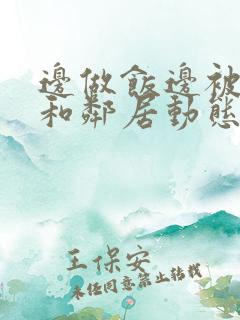 邊做飯邊被
和鄰居動態
王保安
未经同意禁止转载